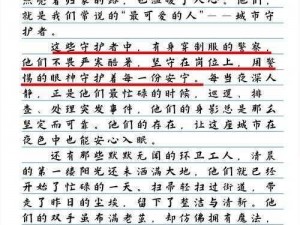 点亮着归家的路，也温暖了人心。他们，
就是我们常说的“最可爱的人”——城市守
护者。
这些守护者中，有身穿制服的警察，
他们不畏严寒酷暑，坚守在岗位上，用警
惕的眼神守护着每一份安宁。每当夜深人
静，正是他们最忙碌的时候，巡逻、排
查、处理突发事件，他们的身影总是那么
坚定而可靠。他们的存在，让这座城市在
夜色中也能安心入眠。
还有那些默默无闻的环卫工人，清晨
的第一缕阳光还未洒满大地，他们就已经
开始了忙碌的一天。扫帚轻扫过街道，带
走了昨日的尘埃，留下了整洁与清新。他
们的双手虽布满老茧，却仿佛拥有魔法，